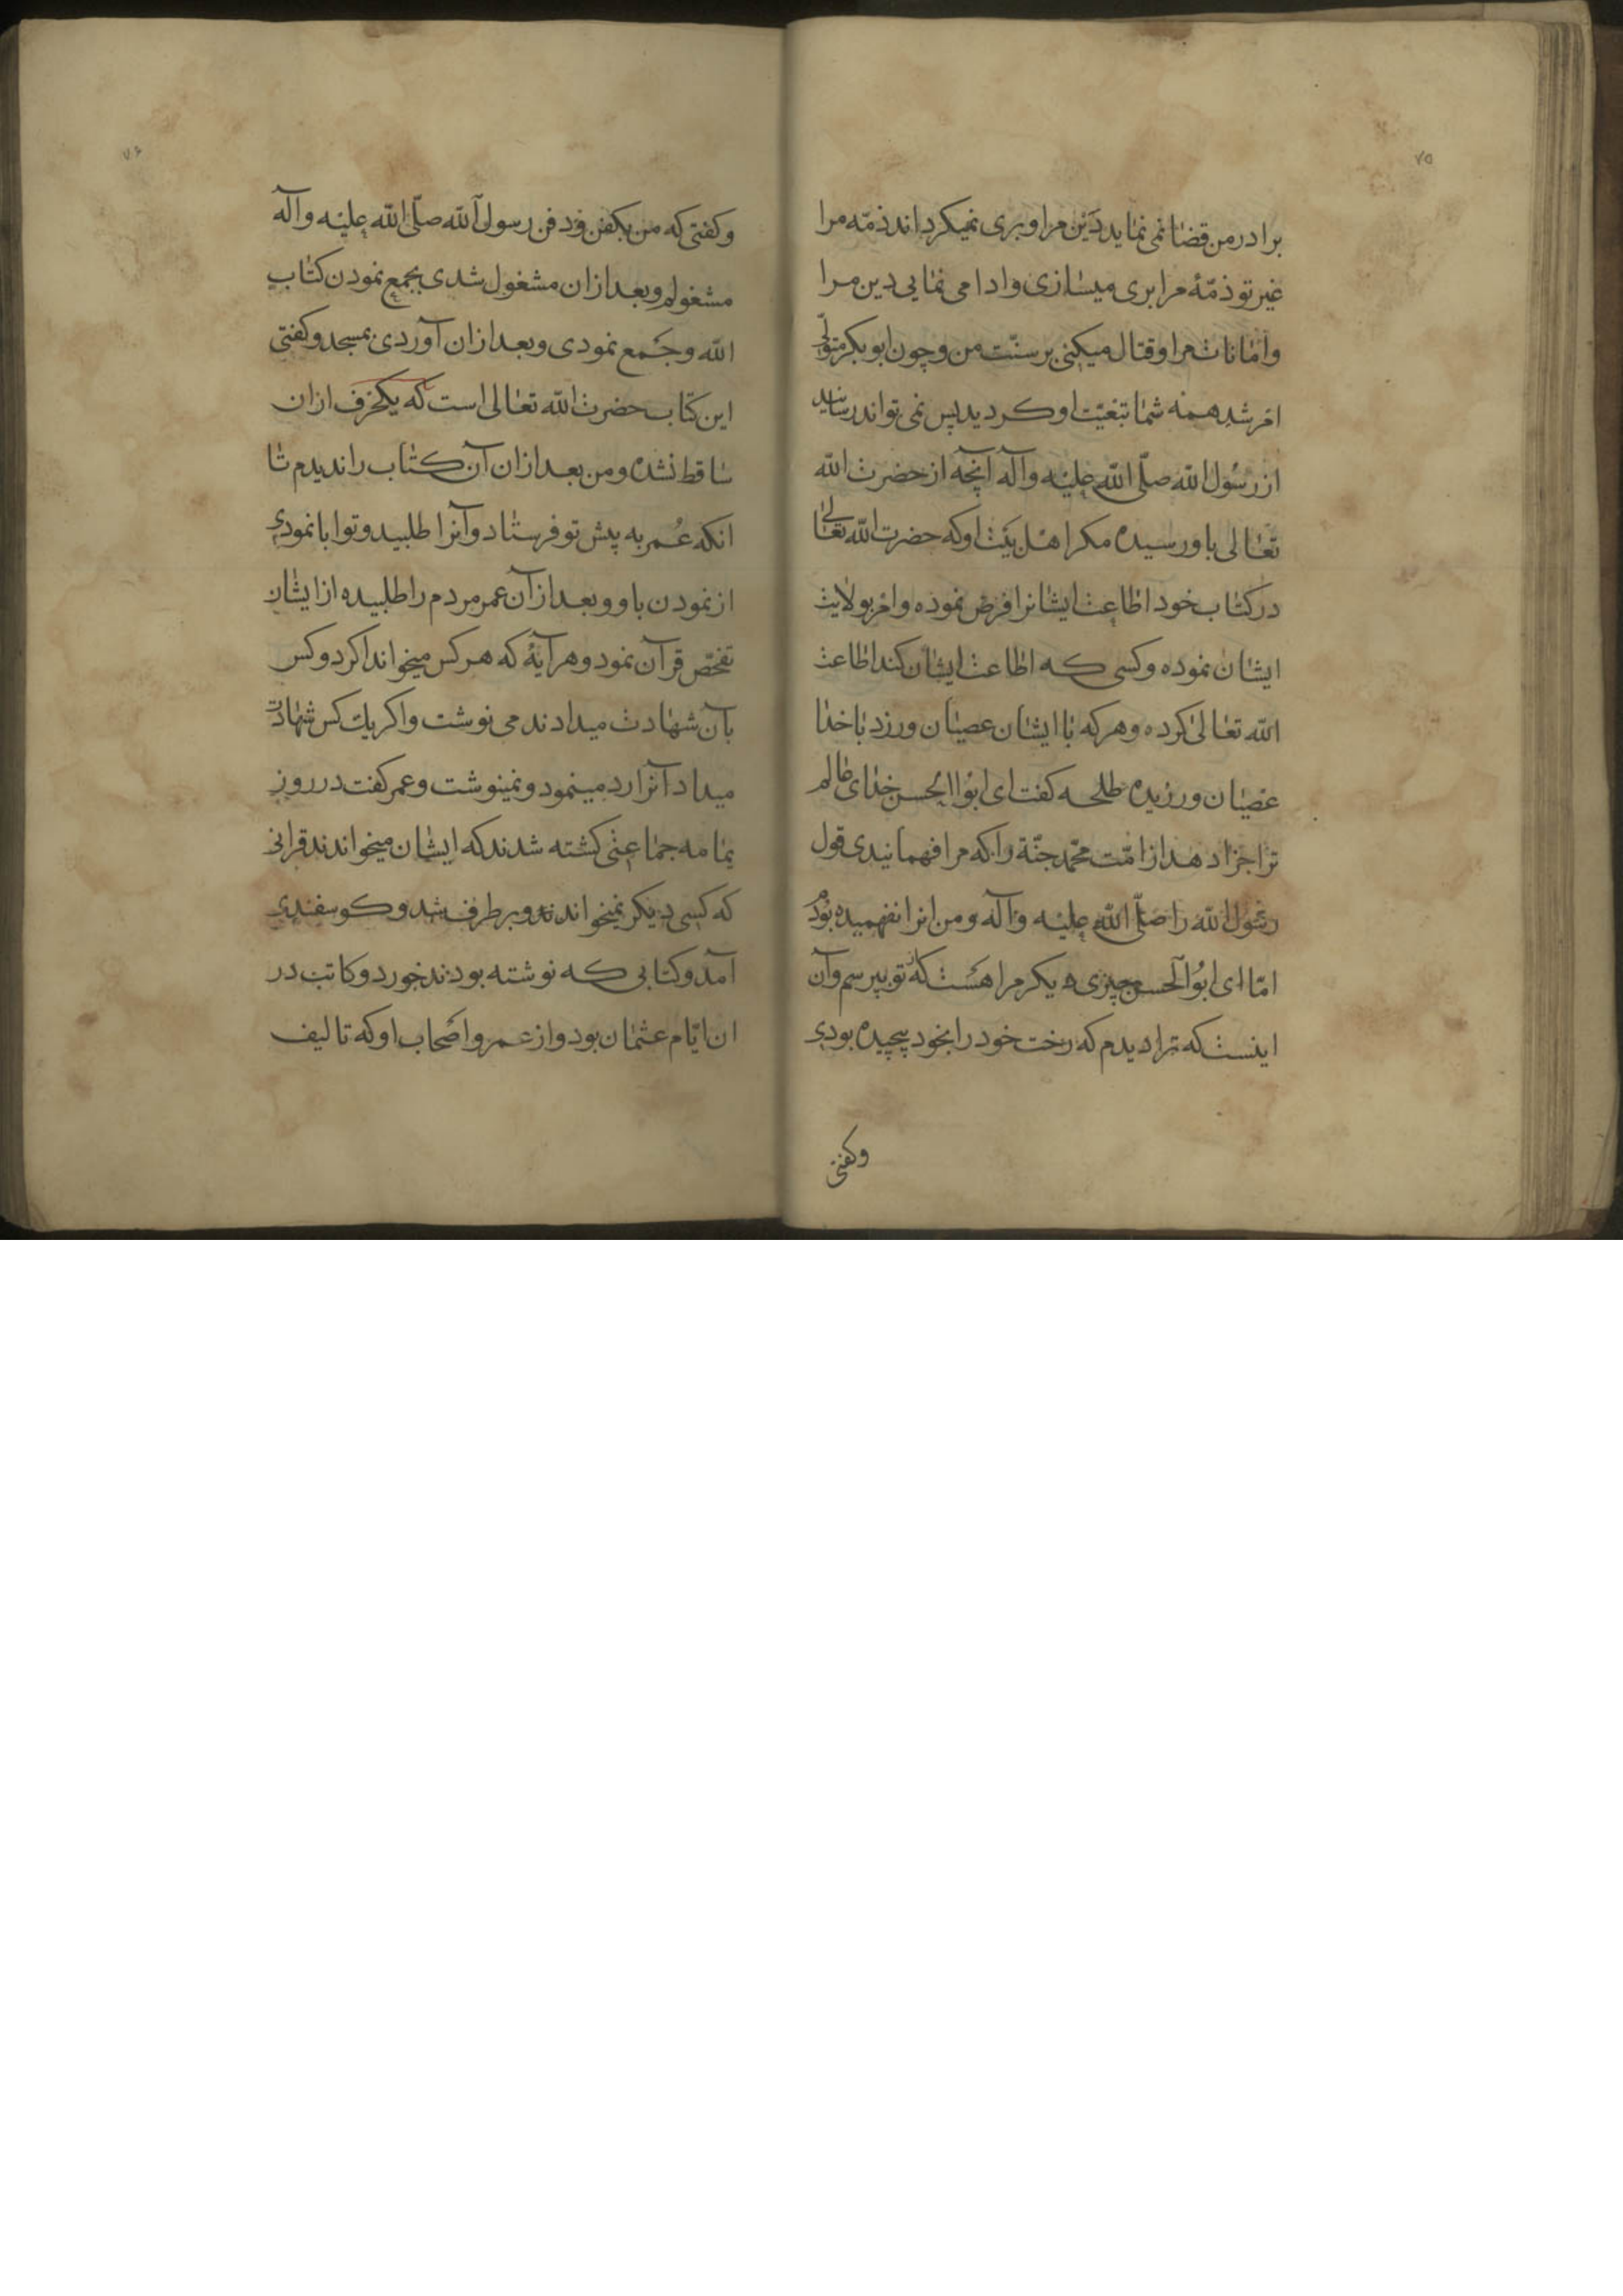 ۷۵
برادر من قضا نمی نماید دین مرا و بری نمیکرداند ذمّه مرا
غیر تو ذمّهٔ مرا بری میسازی و ادا می نمایی دین مرا
و امانات مرا و قتال میکنی بر سنّت من و چون ابو بکر متولّی
امر شد همه شما تبعیّت او کردید پس نمی تواند رسانید
از رسول الله صلّی الله علیه و آله آنچه از حضرت الله
تعالی باو رسیده مکر اهل بیت او که حضرت الله تعالی
در کتاب خود اطاعت ایشانرا فرض نموده و امر بولایت
ایشان نموده و کسی که اطاعت ایشان کند اطاعت
الله تعالی کرده و هر که با ایشان عصیان ورزد با خدا
عصیان ورزیده طلحه کفت ای ابوا الحسن خدای عالم
ترا جزا دهد از امّت محمّد جنّة را که مرا فهمانیدی قول
رسول الله را صلّی الله علیه و آله و من انرا نفهمیده بودم
امّا ای ابوا لحسن چیزی دیکر مرا هست که از تو بپرسم و آن
اینست که ترا دیدم که رخت خود را بخود پیچیده بودی
وکفتی
۷۶
و کفتی که من بکفن و دفن رسول الله صلّی الله علیه و آله
مشغولم و بعد ازان مشغول شدی بجمع نمودن کتاب
الله و جمع نمودی و بعد ازان آوردی بمسجد و کفتی
این کتاب حضرت الله تعالی است که یکحرف ازان
ساقط نشده و من بعد ازان آن کتاب را ندیدم تا
انکه عمر به پیش تو فرستاد و آنرا طلبید و تو ابا نمودی
از نمودن باو و بعد از آن عمر مردم را طلبیده از ایشان
تفحّص قرآن نمود و هر آیهٔ که هر کس میخواند اکر دو کس
بآن شهادت میدادند می نوشت و اکر یك کس شهادت
میداد آنرا رد مینمود و نمینوشت و عمر کفت در روز
یمامه جماعتی کشته شدند که ایشان میخواندند قرانی
که کسی دیکر نمیخواندند و بر طرف شد و کوسفندی
آمد و کتابی که نوشته بودند خورد و کاتب در
ان ایّام عثمان بود و از عمر و اصحاب او که تالیف